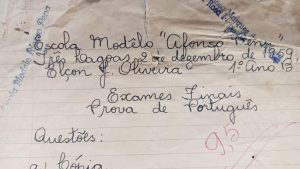 Escola Modêlo "Afonso Pena"
Três Lagoas, 2 de dezembro de 1959
Elçon J. Oliveira 1º Ano B
Exames Finais
Prova de Português
9,5
Questões:
a) Cópia